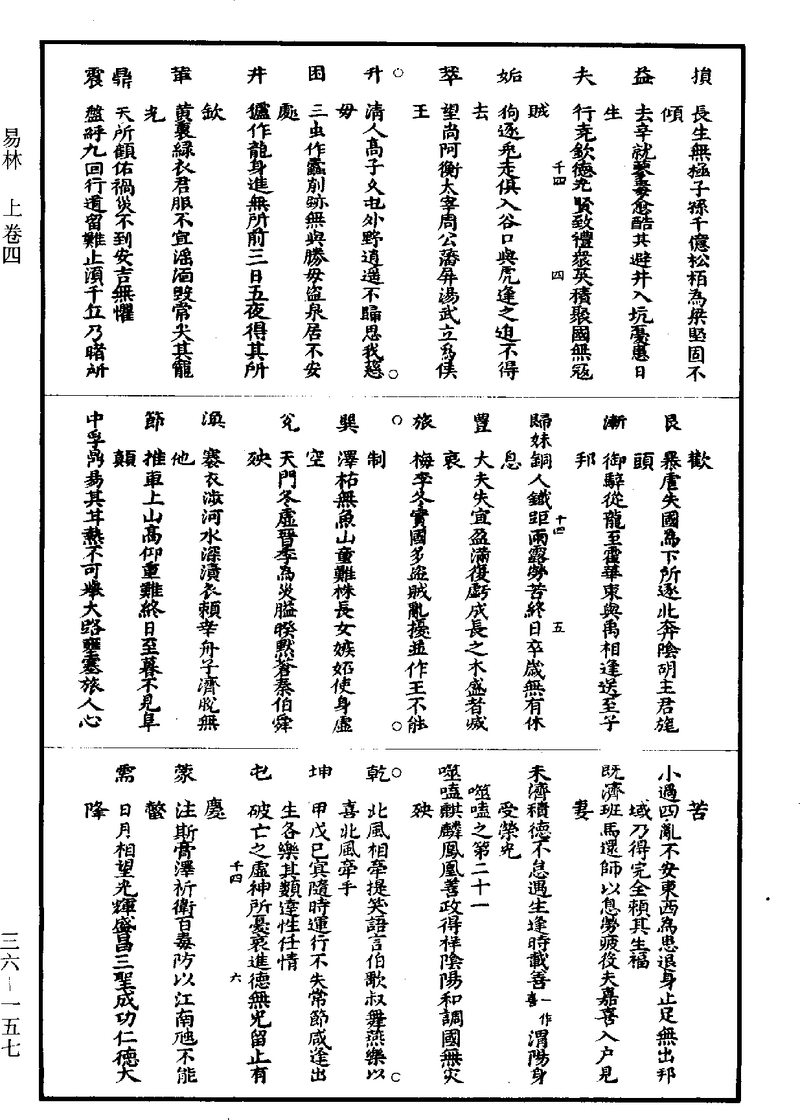 易林 上卷四
三六－一五七
損 長生無極子孫千億松柏為梁堅固不
傾
益 去辛就蓼毒愈酷甚避井入坑憂患日
生
夬 行堯欽德光賢致禮衆英積聚國無寇
千四 四
賊
姤 狗逐兎走俱入谷口與虎逢之迫不得
去
萃 望尚阿衡太宰周公藩屏湯武立為侯
王
升 清人高子久屯外野逍遥不歸思我慈
毋
困 三虫作蠱削跡無與勝毋盜泉居不安
處
井 蠷作龍身進無所前三日五夜得其所
欽
革 黄裏緑衣君服不宜滛湎毀常失其寵
光
鼎 天所顧佑禍災不到安吉無懼
震 盤紆九回行道留難止須千丘乃睹所
歡
艮 暴虐失國為下所逐北奔陰胡主君旄
頭
漸 御騂從龍至霍華東與禹相逢送至于
邦
歸妹 銅人鐵距雨露勞苦終日卒歳無有休
十四 五
息
豐 大夫失宜盈滿復虧戍長之木盛者減
衰
旅 梅李冬實國多盜賊亂擾並作王不能
制
巽 澤枯無魚山童難株長女嫉妬使身虛
空
兊 天門冬虛晉季為災䐑暌黙蒼秦伯舜
殃
渙 褰衣涉河水深漬衣頼幸舟子濟脫無
他
節 推車上山高仰重難終日至暮不見阜
顛
中孚 鼎易其耳熱不可舉大路壅塞旅人心
苦
小過 四亂不安東西為患退身止足無出邦
域乃得完全頼其生福
既濟 班馬還師以息勞疲役夫嘉喜入户見
妻
未濟 積德不怠遇生逢時載善喜一作渭陽身
受榮光
噬嗑之第二十一
噬嗑 麒麟鳳凰善政得祥陰陽和調國無災
殃
乾 北風相牽提笑語言伯歌叔舞燕樂以
喜北風牽手
坤 甲戊巳寅隨時運行不失常節咸逢出
生各樂其類達性任情
屯 破亡之虛神所憂哀進德無光留止有
十四 六
慶
蒙 注斯膏澤祈衛百毒防以江南虺不能
螫
需 日月相望光輝盛昌三聖成功仁德大
降